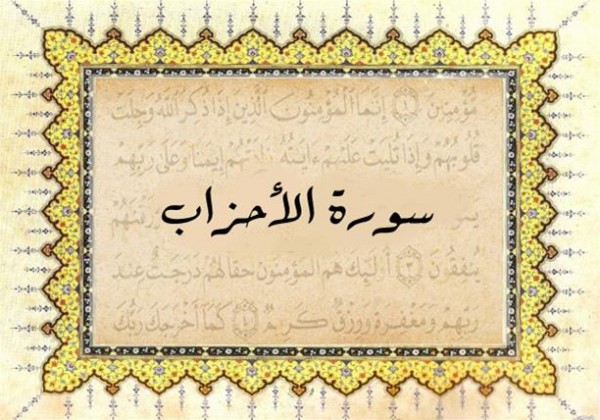 مُّؤْمِنِينَ ١ إِنَّمَا ٱلْمُؤْمِنُونَ ٱلَّذِينَ إِذَا ذُكِرَ ٱللَّهُ وَجِلَتْ
قُلُوبُهُمْ وَإِذَا تُلِيَتْ عَلَيْهِمْ ءَايَٰتُهُۥ إِيمَٰنًا وَعَلَىٰ رَبِّهِمْ
سورة الأحزاب
يُنفِقُونَ ٣ أُوْلَٰٓئِكَ هُمُ ٱلْمُؤْمِنُونَ حَقًّا لَّهُمْ دَرَجَٰتٌ عِندَ
رَبِّهِمْ وَمَغْفِرَةٌ وَرِزْقٌ كَرِيمٌ ٤ كَمَآ أَخْرَجَكَ رَبُّكَ